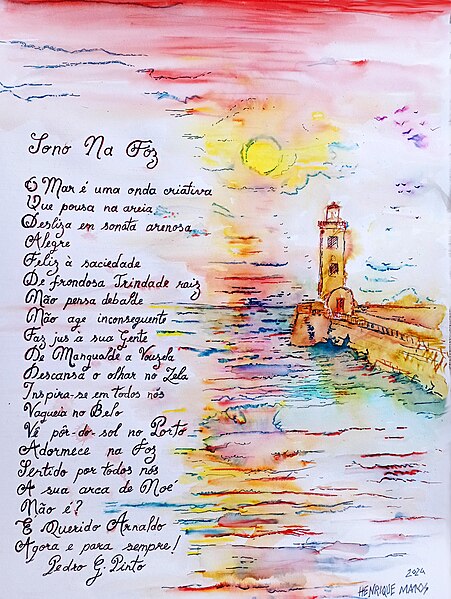 Sono Na Foz
O Mar é uma onda criativa
Que pousa na areia
Desliza em sonata arenosa
Alegre
Feliz à saciedade
De frondosa Trindade raiz
Não pensa debalde
Não age inconseguente
Faz jus a sua Gente
De Mangualde a Vouzela
Descansa o olhar no Zela
Inspira-se em todos nós
Vagueia no Belo
Vê pôr-do-sol no Porto
Adormece na Foz
Sentido por todos nós
A sua arca de Noé
Não é?
É Querido Arnaldo
Agora e para sempre!
Pedro G. Pinto
2024
HENRIQUE MATOS